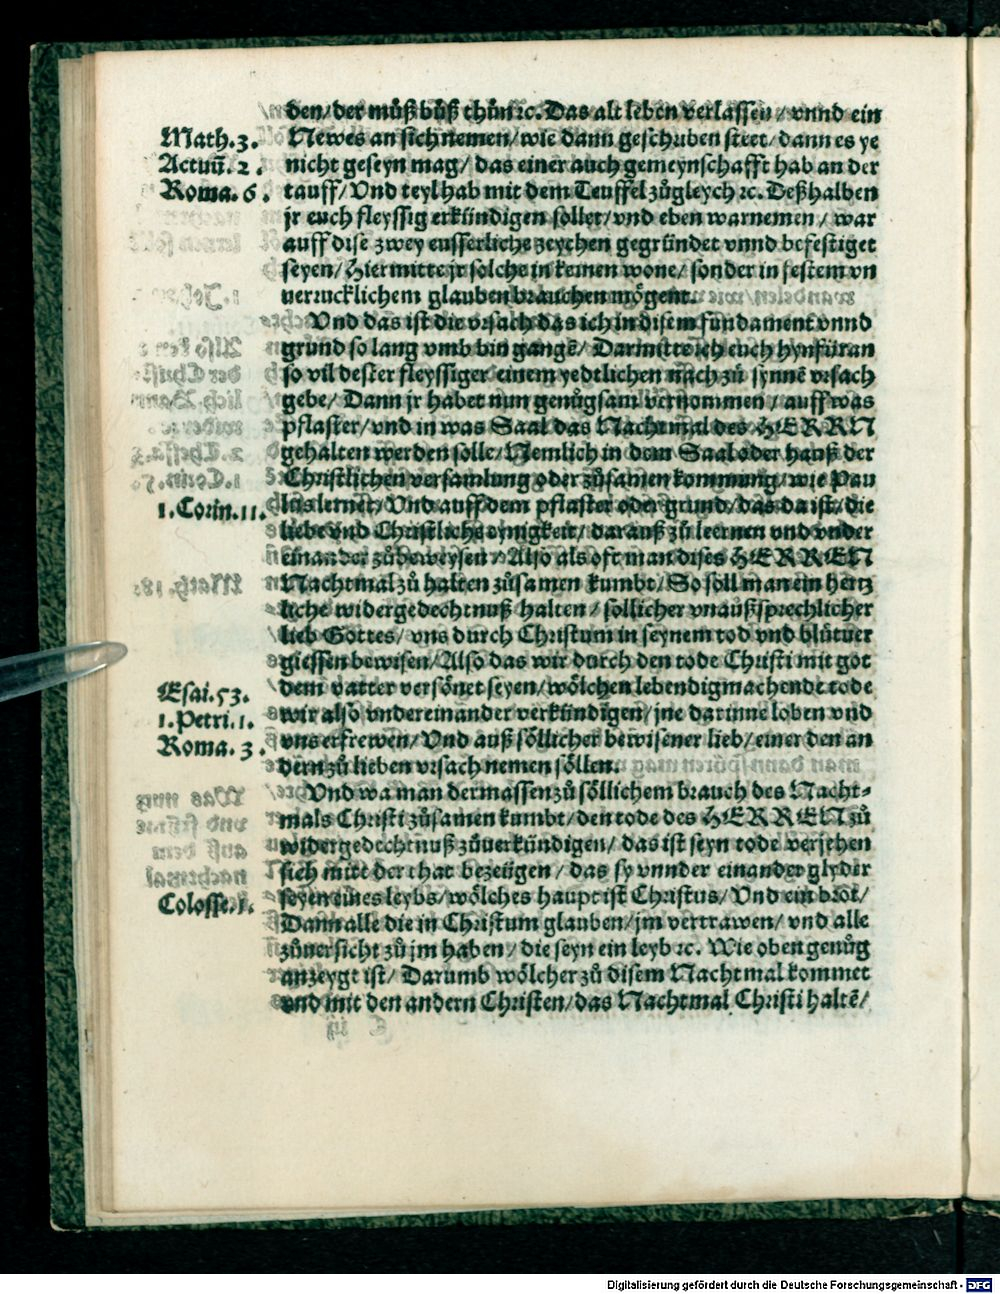 den/ der müß büß thůn ꝛc. Das alt leben verlassen / vnnd ein
Math.3. Newes an sich nemen/ wie dann geschriben steet/ dann es ye
Actuū.2. nicht geseyn mag/ das einer auch gemeynschafft hab an der
Roma.6. tauff/ Vnd teyl hab mit dem Teuffel zůgleych ꝛc. Deßhalben
jr euch fleyssig erkündigen söllet/ vnd eben warnemen / war
auff dise zwey eusserliche zeychen gegründet vnnd befestiget
seyen/ Hiermitte jr solche in keinen wone/ sonder in festem vn
uerrucklichem glauben brauchen mögent.
Vnd das ist die vrsach das ich in disem fundament vnnd
grund so lang vmb bin gangē/ Darmitte ich euch hynfüran
so vil dester fleyssiger einem yedtlichen nach zů synnē vrsach
gebe/ Dann jr habet nun genůgsam vernommen / auff was
pflaster/ vnd in was Saal das Nachtmal des HERRN
gehalten werden solle/ Nemlich in dem Saal oder hauß der
Christlichen versamlung oder zůsamen kommung/ wie Pau
1.Corin.11. lus lernet/ Vnd auff dem pflaster oder grund/ das da ist/ die
liebe vnd Christliche eynigkeit/ darauß zů leernen vnd vnder
einander zůbeweysen / Also als oft man dises HERREN
Nachtmal zů halten zůsamen kumbt/ So soll man ein hertz
liche widergedechtnuß halten / sollicher vnaußsprechlicher
lieb Gottes/ vns durch Christum in seynem tod vnd blůtuer
giessen bewisen/ Also das wir durch den tode Christi mit got
Esai.53. dem vatter versönet seyen/ wölchen lebendigmachende tode
1.Petri.1. wir also vndereinander verkündigen/ jne darinne loben vnd
Roma.3. vns erfrewen/ Vnd auß söllicher bewisener lieb/ einer den an
dern zů lieben vrsach nemen söllen.
Vnd wa man dermassen zů söllichem brauch des Nacht-
mals Christi zůsamen kumbt/ den tode des HERREN zů
widergedechtnuß zůuerkündigen/ das ist seyn tode verjehen
sich mitt der that bezeügen / das sy vnnder einander glyder
Colosse.1. seyen eines leybs/ wölches haupt ist Christus/ Vnd ein brot/
Dann alle die in Christum glauben/ jm vertrawen/ vnd alle
zůuersicht zů jm haben/ die seyn ein leyb ꝛc. Wie oben genůg
anzeygt ist/ Darumb wölcher zů disem Nachtmal kommet
vnd mit den andern Christen/ das Nachtmal Christi haltē/
Digitalisierung gefördert durch die Deutsche Forschungsgemeinschaft - DFG